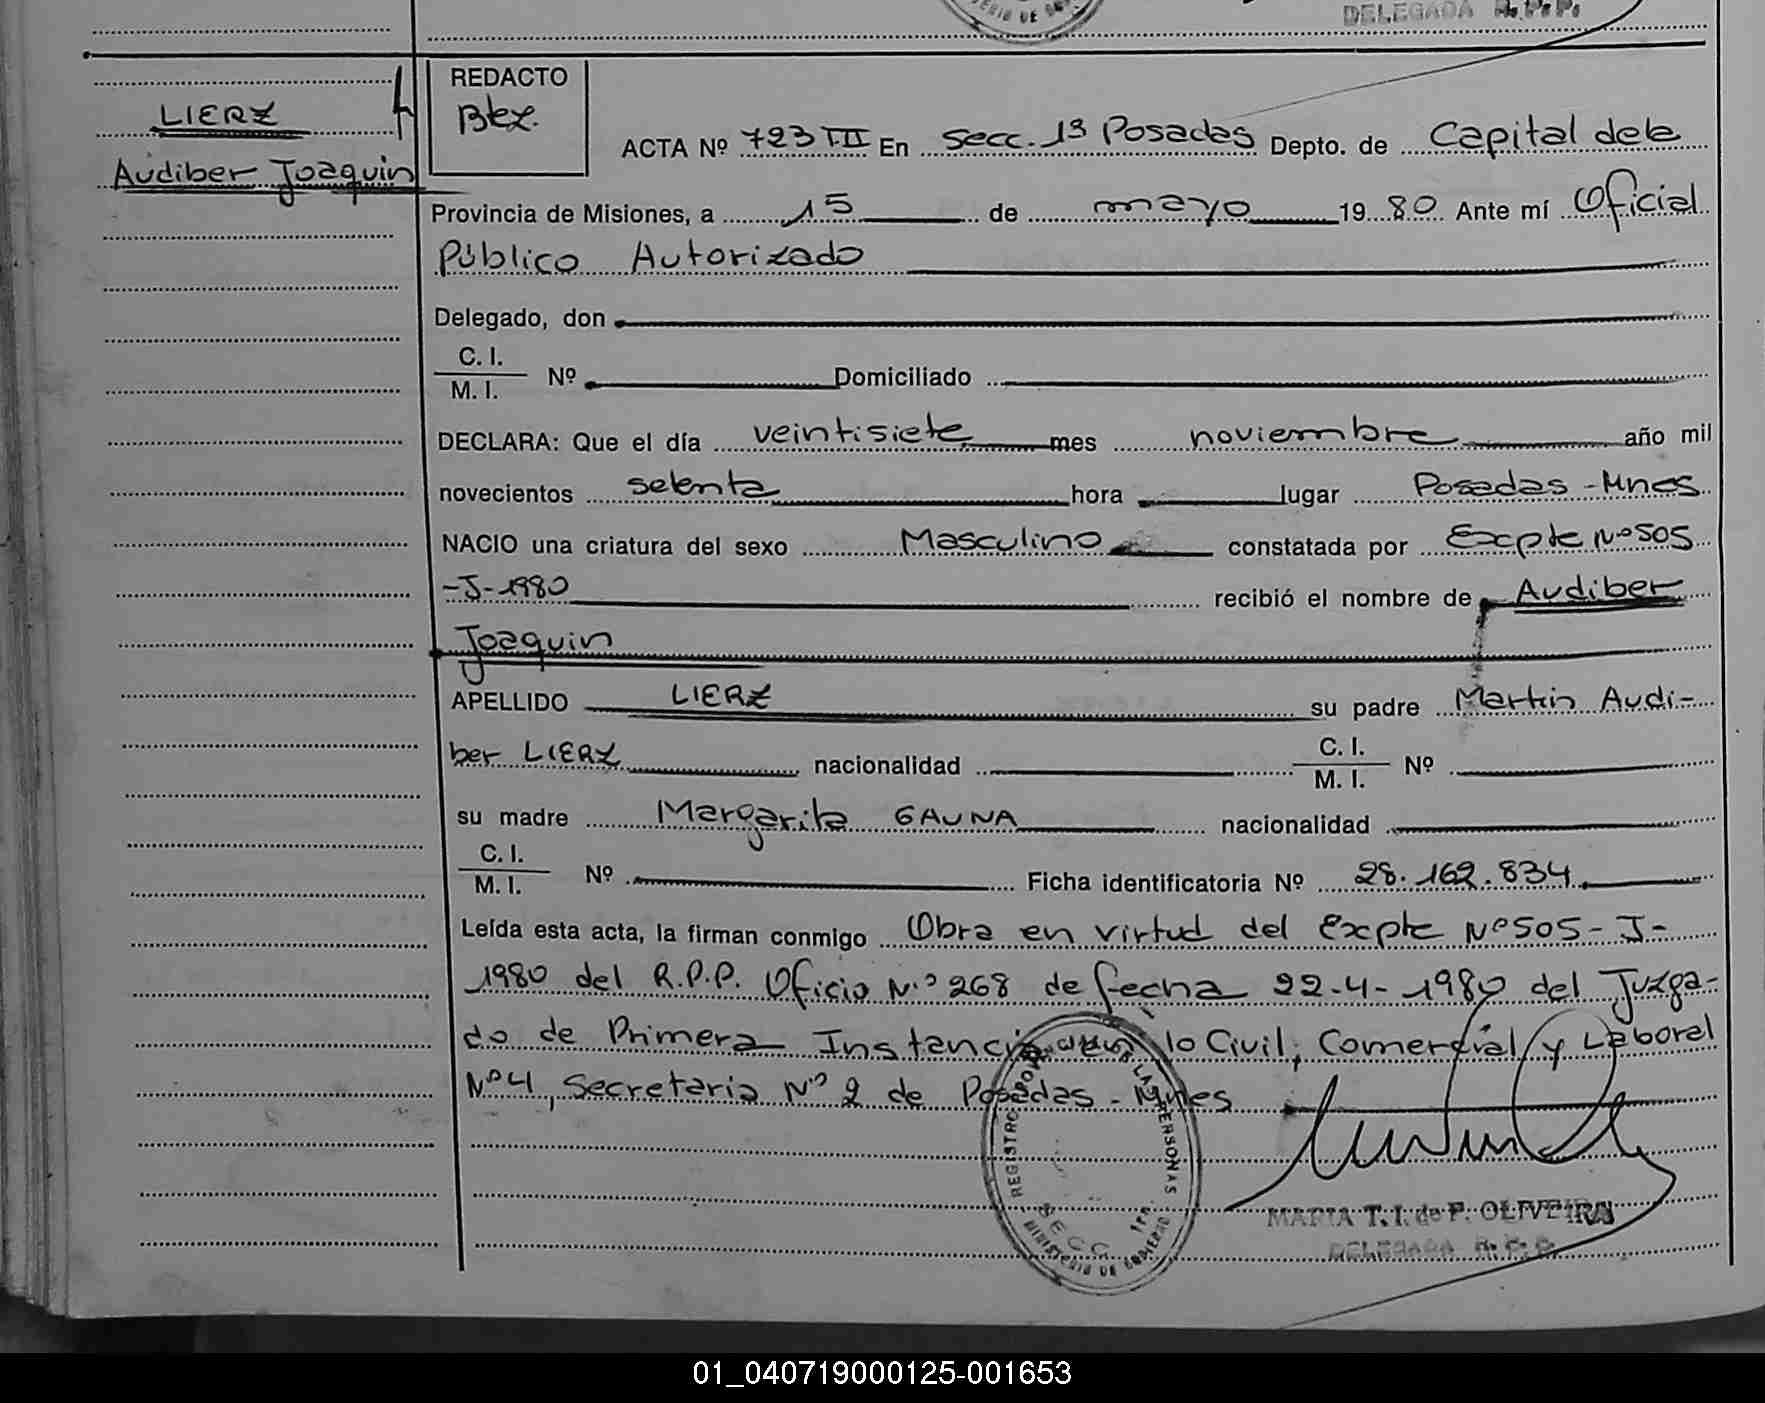 DELEGADA R.P.P.
LIERZ
Audiber Joaquin
REDACTO
ACTA Nº 723 T.II En Secc. 1ª Posadas Depto. de Capital de la
Provincia de Misiones, a 15 de mayo 1980 Ante mí Oficial
Público Autorizado
Delegado, don
C. I.
M. I. Nº Domiciliado
DECLARA: Que el día veintisiete mes noviembre año mil
novecientos setenta hora lugar Posadas - Mnes
NACIO una criatura del sexo Masculino constatada por Excpte Nº 505
-J-1980 recibió el nombre de Audiber
Joaquin
APELLIDO LIERZ su padre Martin Audi-
ber LIERZ nacionalidad C. I. M. I. Nº
su madre Margarita GAUNA nacionalidad
C. I.
M. I. Nº Ficha identificatoria Nº 28.162.834
Leída esta acta, la firman conmigo Obra en virtud del Excpte Nº 505-J-
1980 del R.P.P. Oficio N.º 268 de fecha 22-4-1980 del Juzga-
do de Primera Instancia en lo Civil, Comercial y Laboral
Nº 4, Secretaria Nº 2 de Posadas - Mnes
REGISTRO LAS PERSONAS
SECC. 1ra.
MINISTERIO DE GOBIERNO
MARIA T. I. de P. OLIVEIRA
DELEGADA R. P. P.
01_040719000125-001653